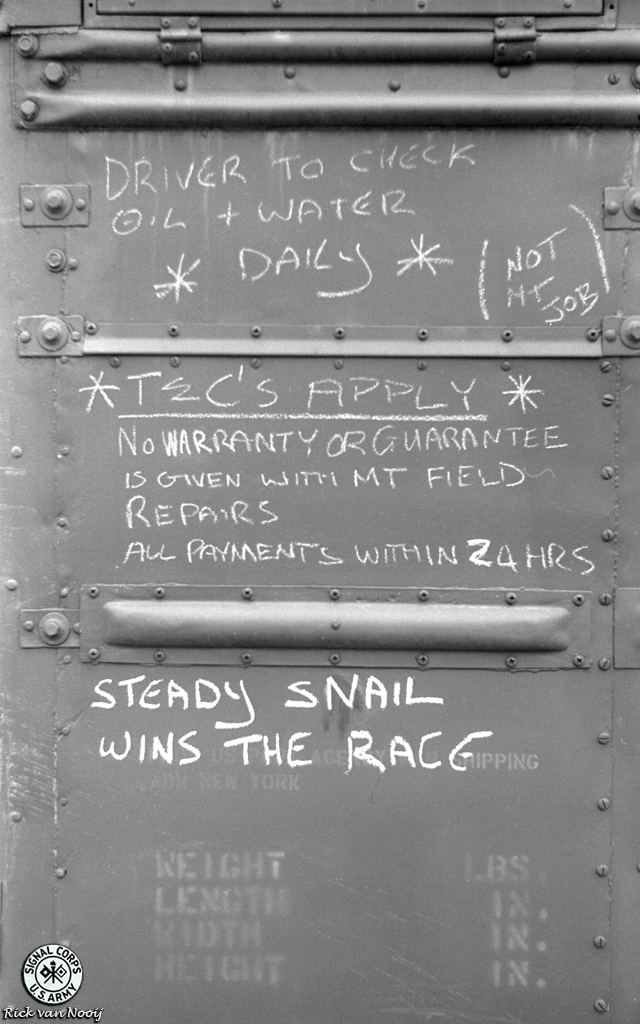 DRIVER TO CHECK
OIL + WATER
* DAILY *
(NOT
MT
JOB)
* T&C'S APPLY *
NO WARRANTY OR GUARANTEE
IS GIVEN WITH MT FIELD
REPAIRS
ALL PAYMENTS WITHIN 24 HRS
STEADY SNAIL
WINS THE RACE
US AGENCY SHIPPING
ADM NEW YORK
WEIGHT LBS.
LENGTH IN.
WIDTH IN.
HEIGHT IN.
SIGNAL CORPS
U.S. ARMY
Rick van Nooij